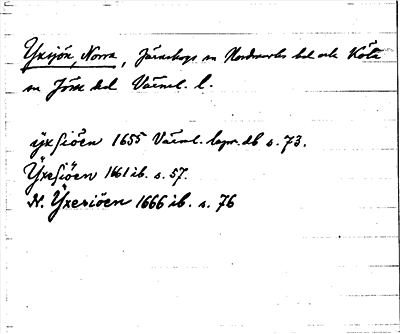 Yxsjön, Norra, Järnskogs sn Nordmarks hd och Köla
sn Jösse hd Värml. l.
ÿxsiöen 1655 Värml. lagm.db s. 73.
Ÿxesiöen 1661 ib. s. 57.
N. Ÿxesiöen 1666 ib. s. 76